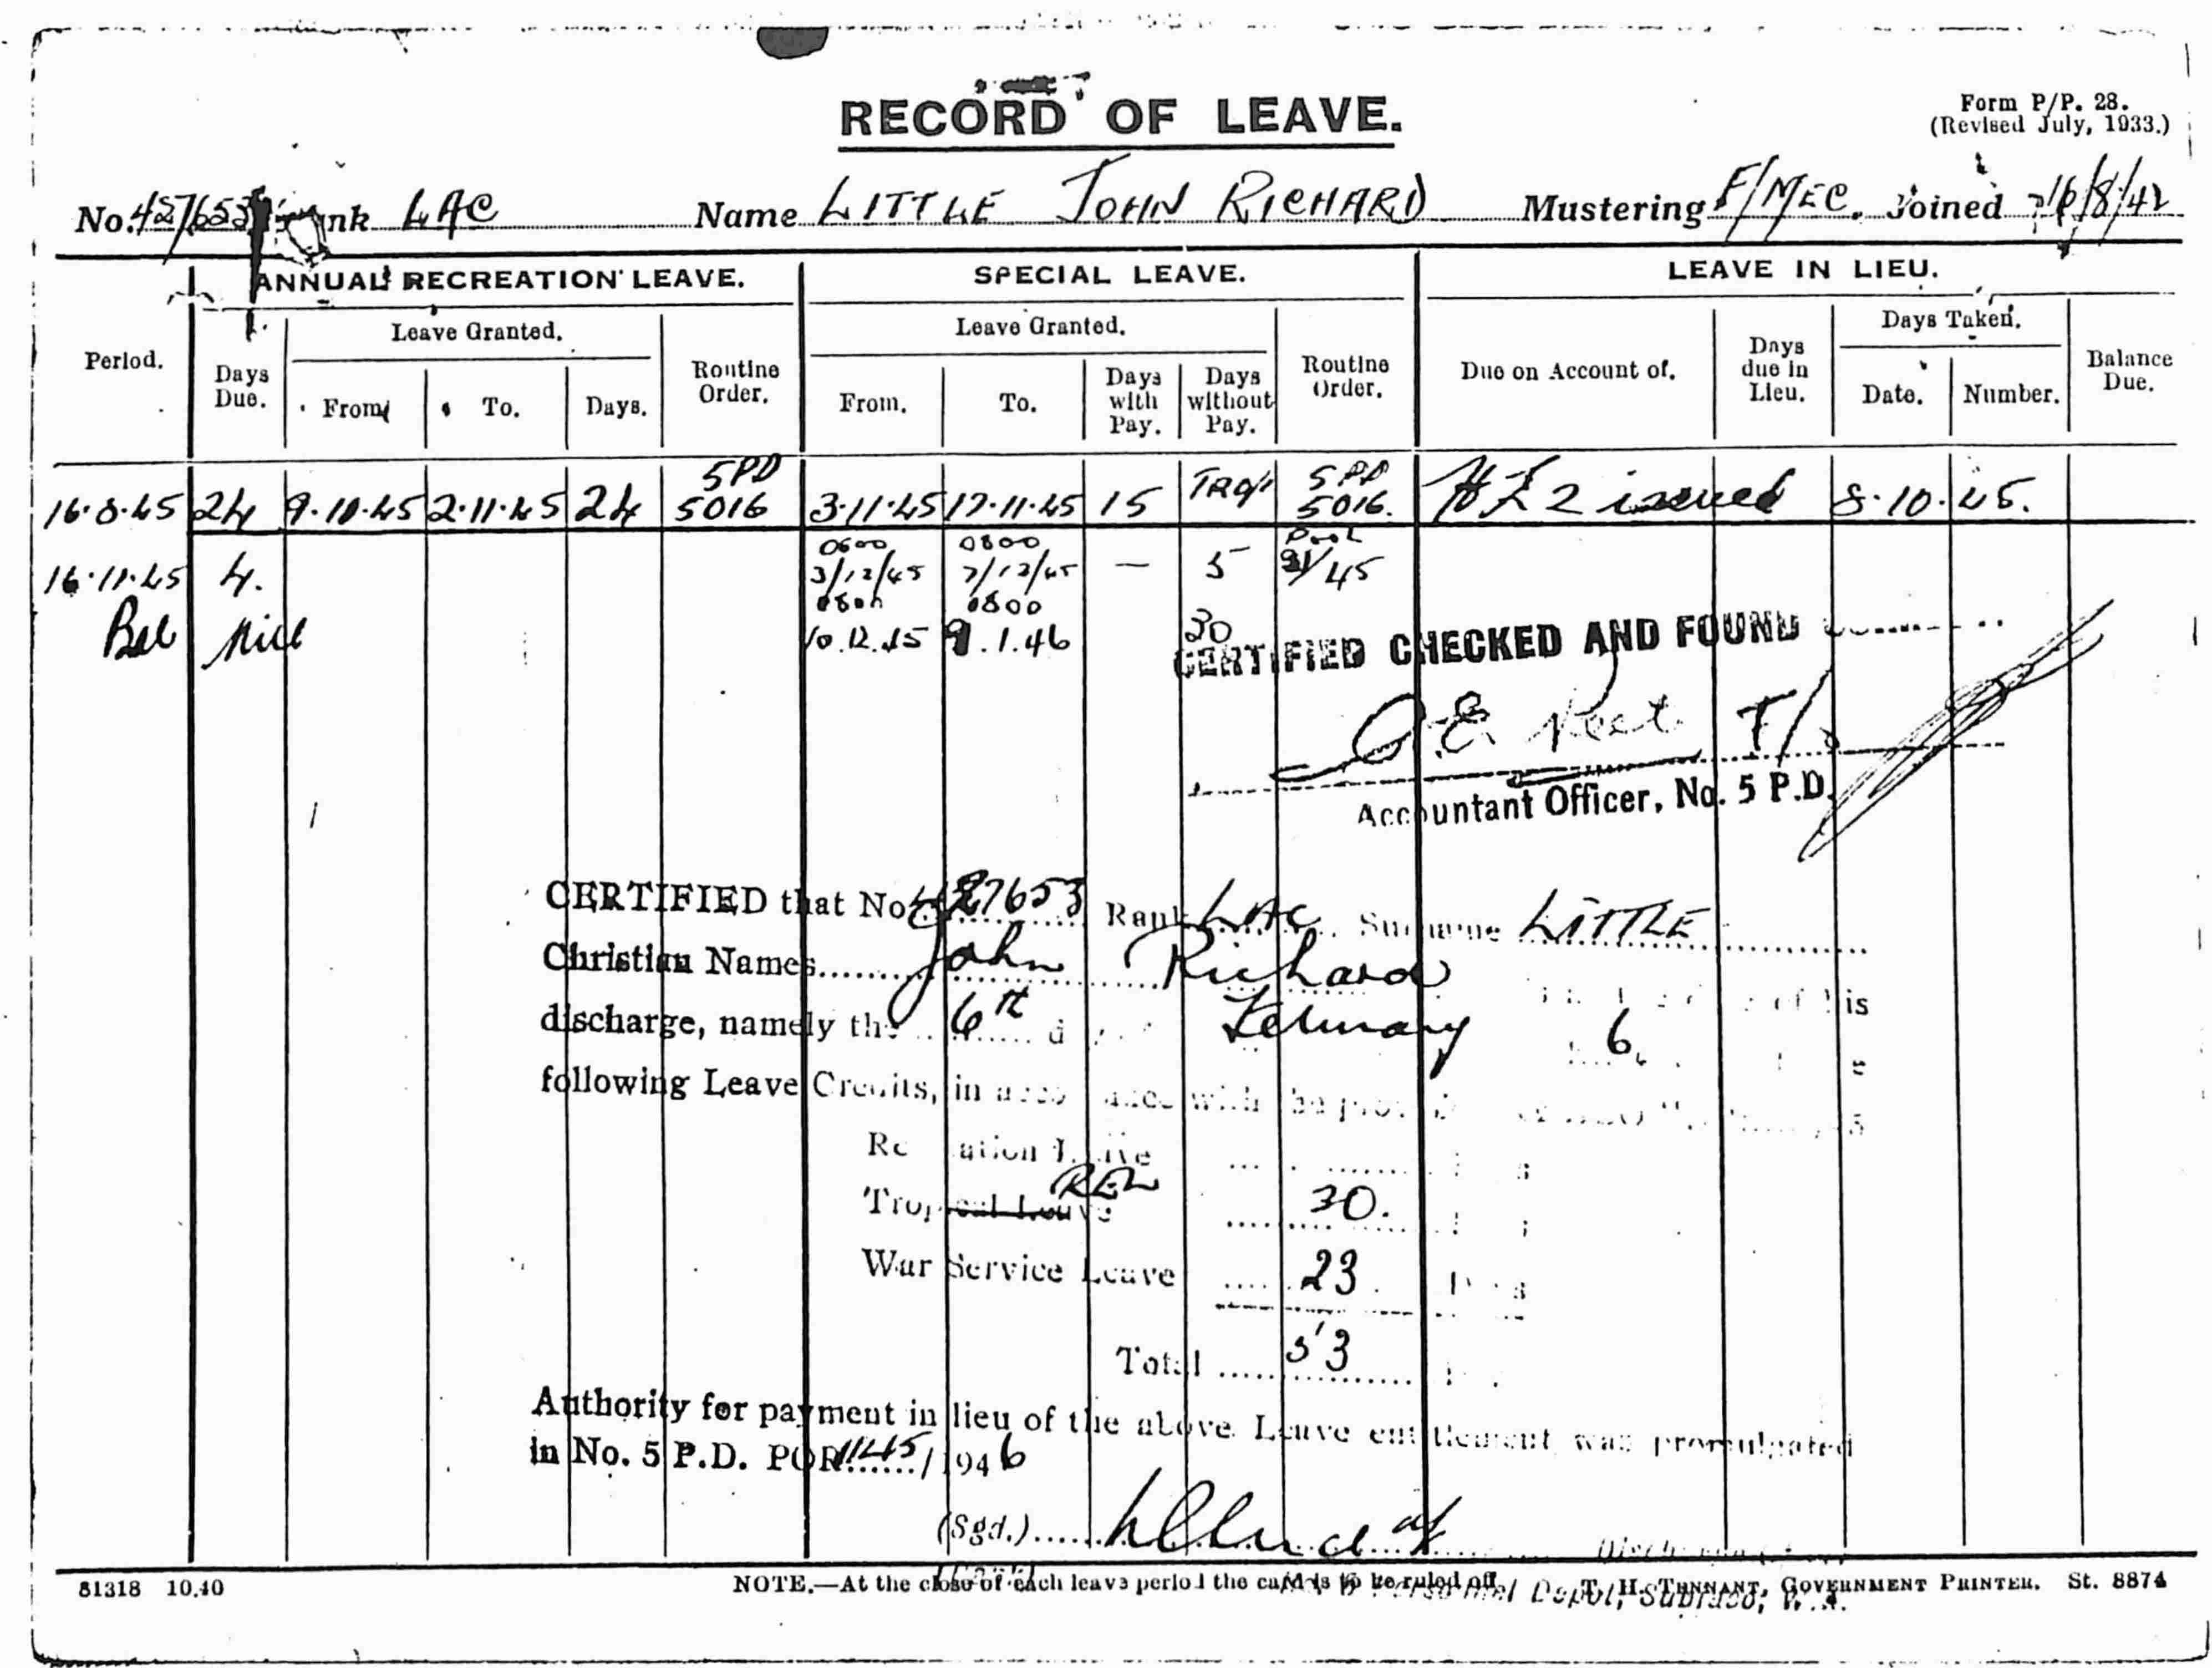 RECORD OF LEAVE.
Form P/P. 28.
(Revised July, 1933.)
No. 427653 LAC Name LITTLE JOHN RICHARD Mustering F/MEC. Joined 16/8/42
ANNUAL RECREATION LEAVE. SPECIAL LEAVE. LEAVE IN LIEU.
Period. Days Due. Leave Granted. From To. Days. Routine Order. Leave Granted. From. To. Days with Pay. Days without Pay. Routine Order. Due on Account of. Days due in Lieu. Days Taken. Date. Number. Balance Due.
16.8.45 24 9.10.45 2.11.45 24 5PD 5016 3.11.45 17.11.45 15 TROP 5PD 5016. issued 8.10.45.
16.11.45 4. 0600 3/12/45 0800 7/12/45 — 5 /45
Bal Nill 0800 10.12.45 0800 9.1.46 30
CERTIFIED CHECKED AND FOUND
Accountant Officer, No. 5 P.D.
CERTIFIED that No 427653 Rank LAC Surname LITTLE
Christian Names John Richard
discharge, namely the 6th February 6 of his
following Leave Credits, in
Leave
REL 30.
War Service Leave 23
Total 53
Authority for payment in lieu of the above Leave entitlement was promulgated
in No. 5 P.D. POR 1145/1946
(Sgd.)
81318 10.40 NOTE.—At the close of each leave period the card is to be ruled off. T. H. TENNANT, GOVERNMENT PRINTER. St. 8874
Personnel Depot, Subiaco, W.A.